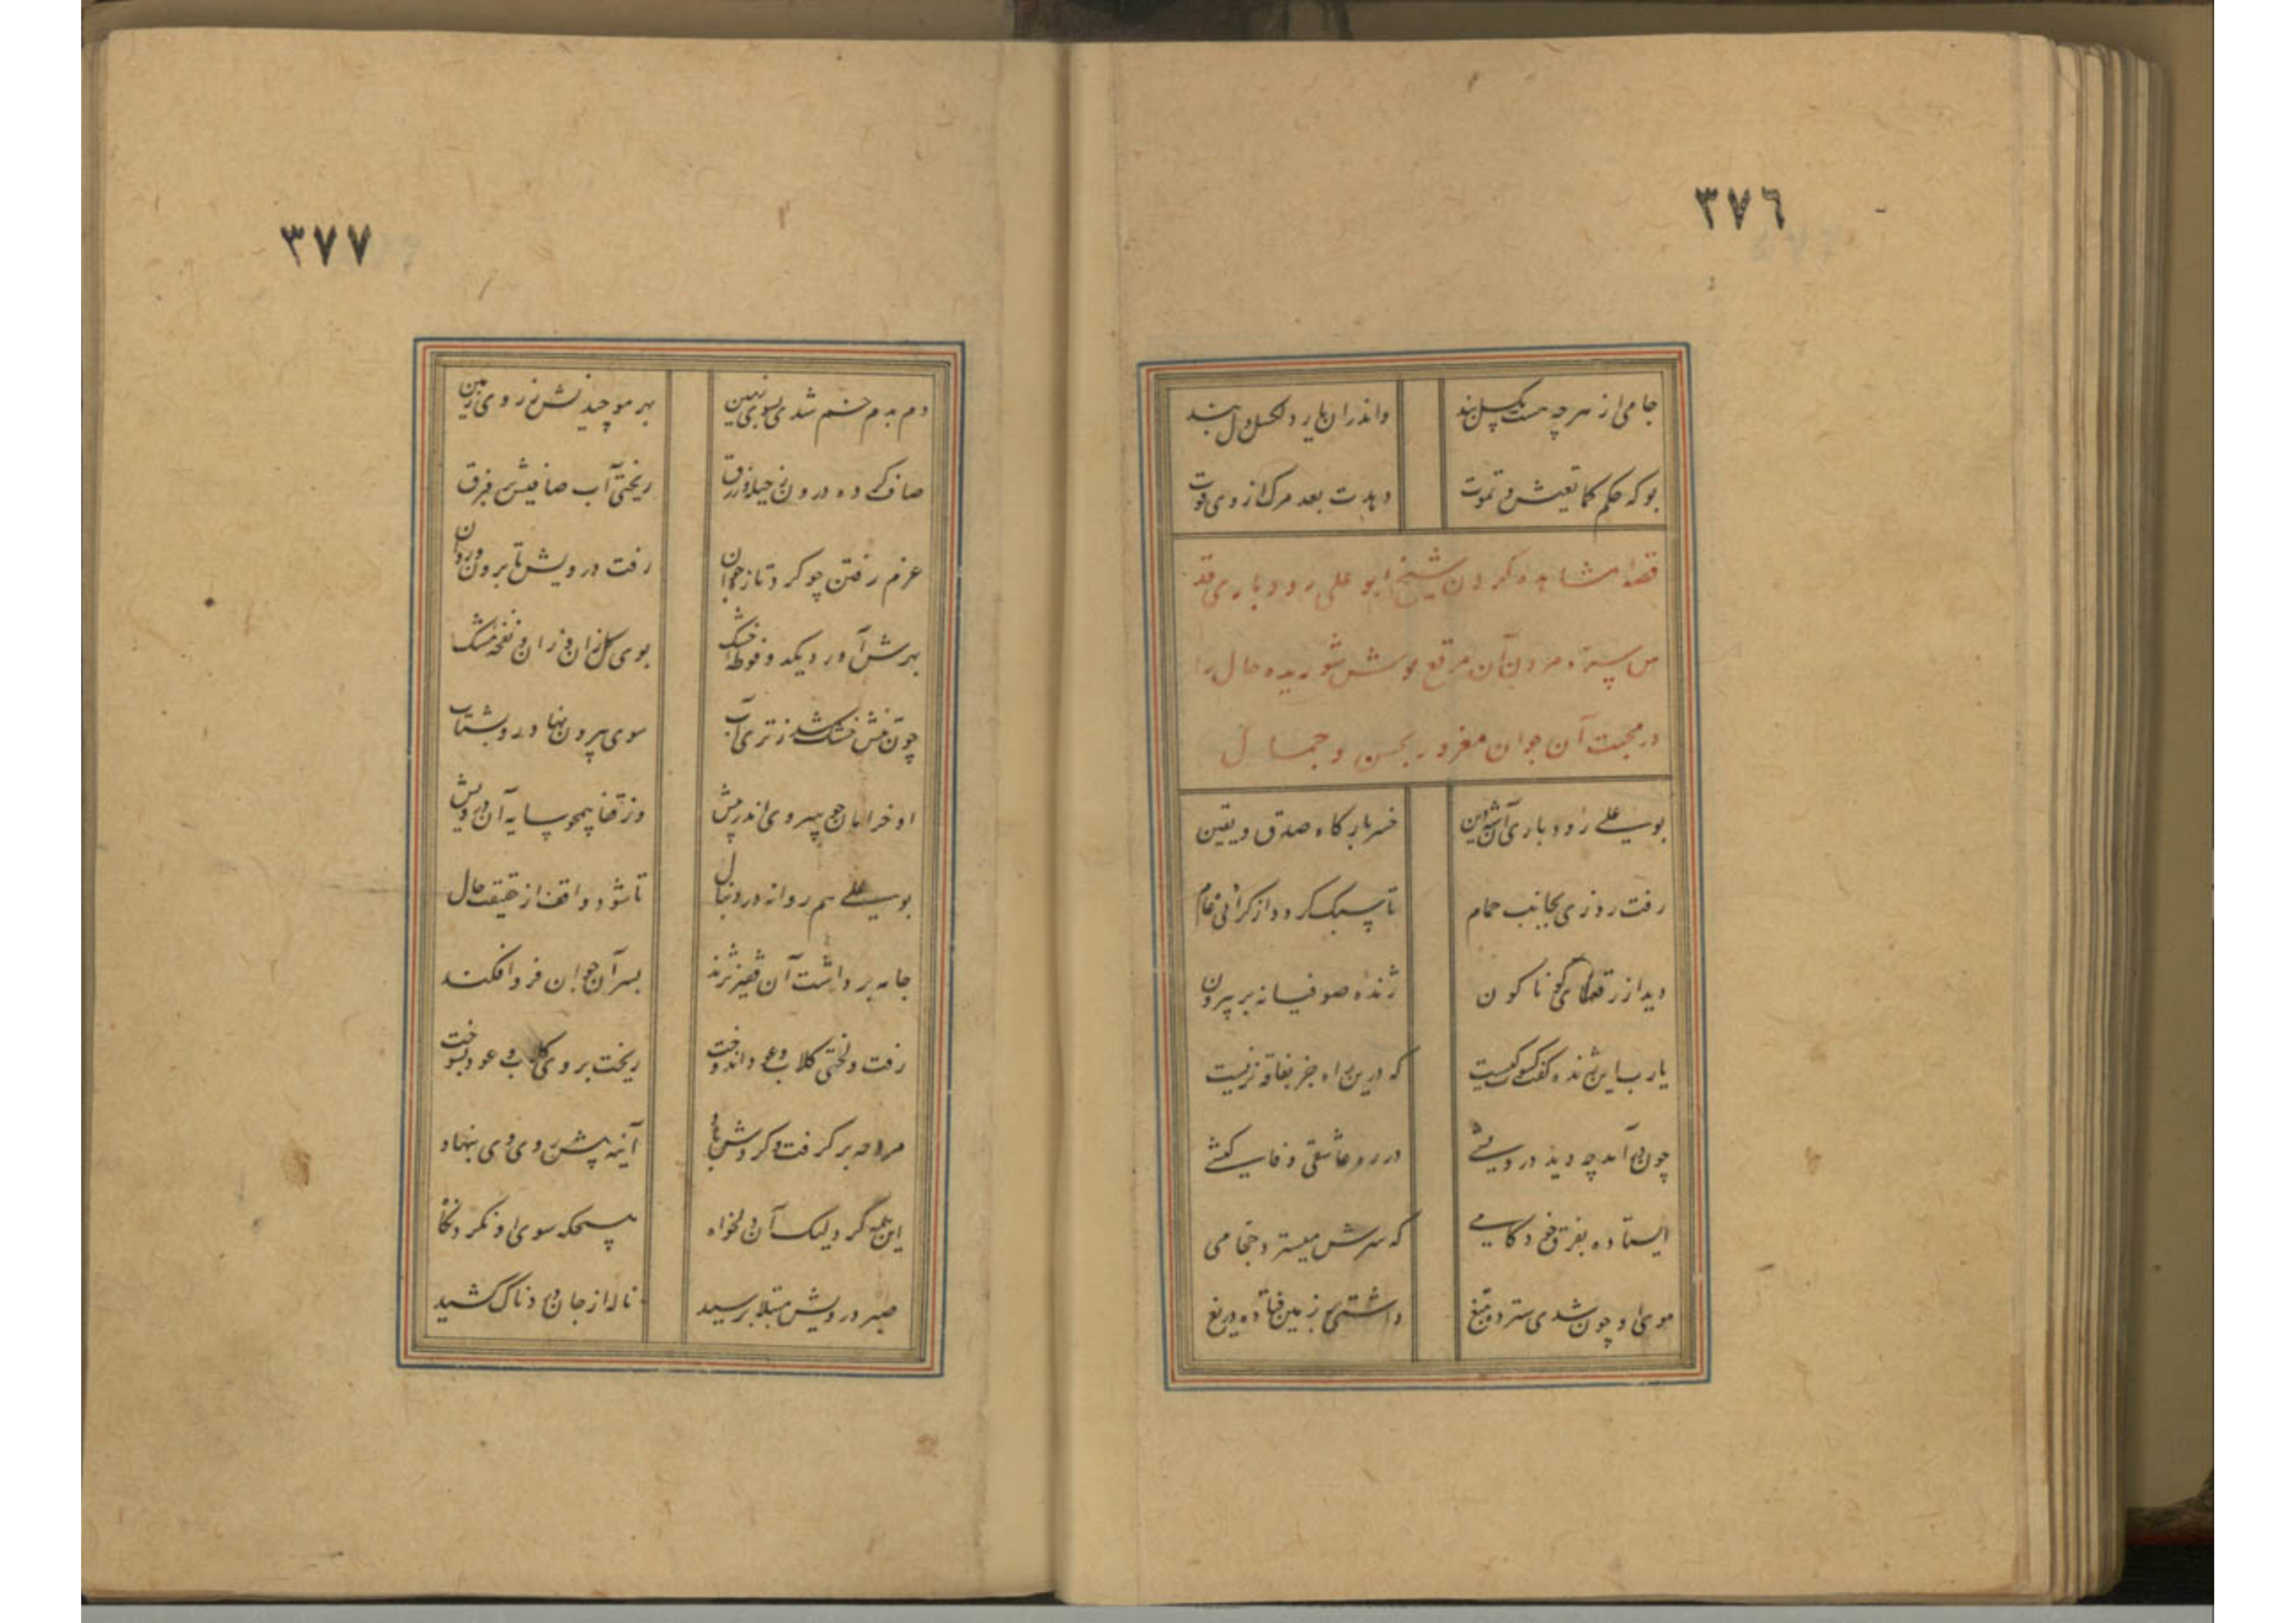 ٣٧٦
جامی از هر چه هست بگسل بند
واندر آن یار دلگسل دل بند
بو که حکم کما تعیش تموت
دهدت بعد مرگ از وی قوت
قصه مشاهده کردن شیخ ابو علی رودباری قد
س سره مردن آن مرقع پوش شوریده حال را
در محبت آن جوان مغرور بحسن و جمال
بو علی رودباری آن شه دین
خسر بارگاه صدق و یقین
رفت روزی بجانب حمام
تا سبک گردد از گرانی عام
دید از رقعهای گوناگون
ژنده صوفیانه بر بیرون
یارب این ژنده گفت کسوت کیست
که درین راه جز بفاقه نزیست
چون در آمد چه دید درویشی
در ره عاشقی وفا کیشی
ایستاده بفرق خود کامی
که سرش میسترد حجامی
موی او چون شدی سترده بتیغ
داشتی بر زمین فتاده دریغ
٣٧٧
دم بدم خم شدی بسوی زمین
بهر مو چیدنش ز روی زمین
صاف کرده درون ز حیله و زرق
ریختی آب صافیش بر فرق
عزم رفتن چو کرد تازه جوان
رفت درویش تا برون دوان
بهرش آورد یکدو فوطه خشک
بوی گل زان وزان و نفحه مشک
چون تنش خشک شد ز تری آب
سوی بیرون نهاد رو بشتاب
او خرامان چو سروی اندر پیش
وز قفا همچو سایه آن درویش
بو علی هم روانه در دنبال
تا شود واقف از حقیقت حال
جامه برداشت آن فقیر نژند
بسر آن جوان فرو افکند
رفت و لختی گلاب و عود اندوخت
ریخت بر وی گلاب و عود بسوخت
مروحه بر گرفت و کردش باد
آینه پیش روی وی بنهاد
این همه کرد لیک آن دلخواه
هیچگه سوی او نکرد نگاه
صبر درویش مبتلا برسید
ناله از جان دردناک کشید